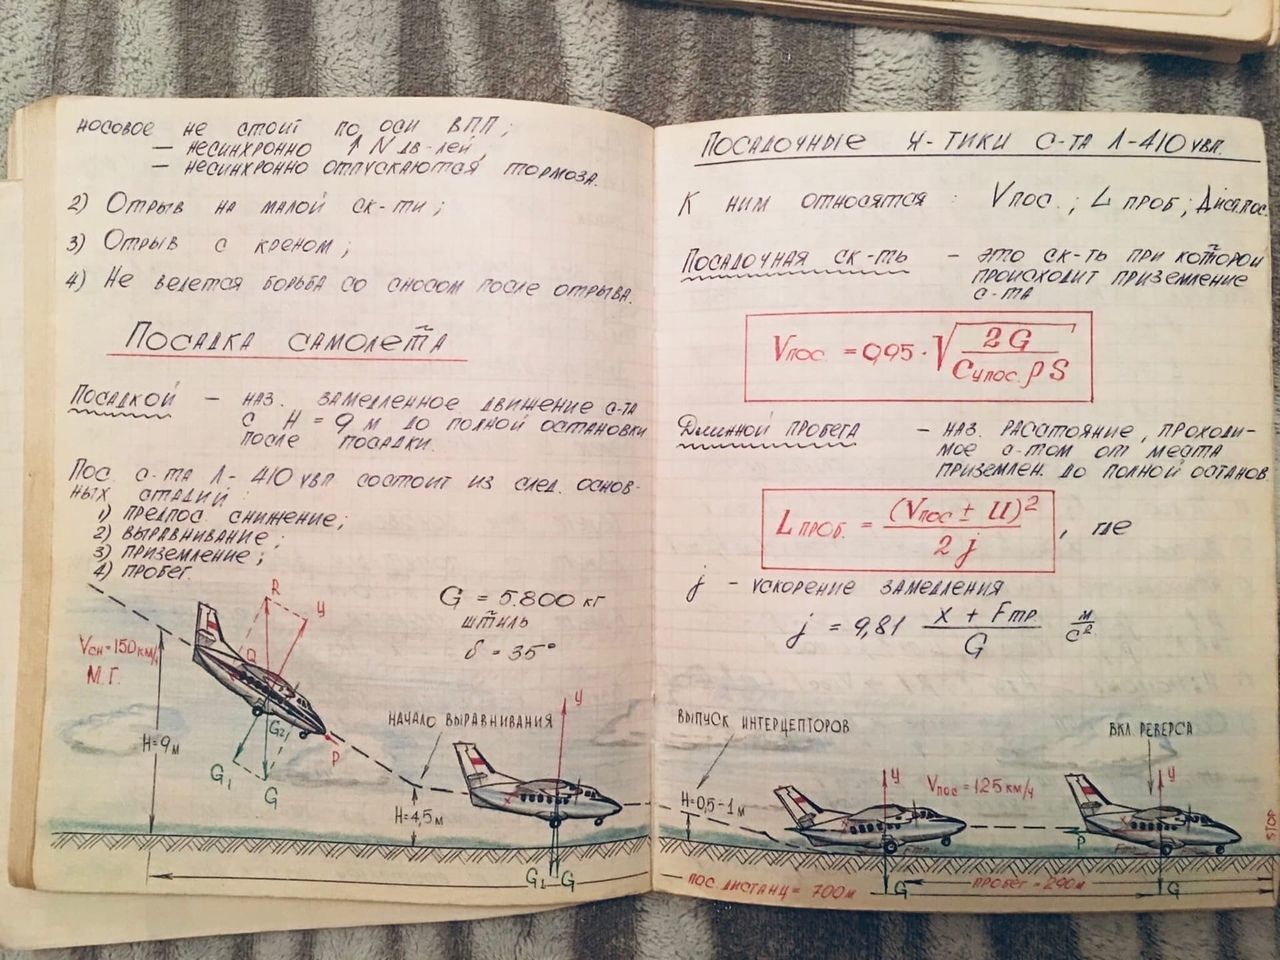 носовое не стоит по оси ВПП;
— несинхронно ↑ N дв-лей,
— несинхронно отпускаются тормоза.
2) Отрыв на малой ск-ти;
3) Отрыв с креном;
4) Не ведется борьба со сносом после отрыва.
Посадка самолета
Посадкой — наз. замедленное движение с-та
с H = 9 м до полной остановки
после посадки.
Пос. с-та Л-410 увп состоит из след. основ-
ных стадий:
1) предпос. снижение;
2) выравнивание;
3) приземление;
4) пробег.
G = 5.800 кг
штиль
δ = 35°
R
У
Vсн=150км/ч
М.Г.
Q
H=9м
G2
G1
G
P
начало выравнивания
H=4,5м
У
G1 G
Посадочные х-тики с-та Л-410 увп.
К ним относятся: Vпос.; L проб; Дист.пос.
Посадочная ск-ть — это ск-ть при которой
происходит приземление
с-та
Vпос. = 0,95 · √ 2G / Cупос. ρ S
Длинной пробега — наз. расстояние, проходи-
мое с-том от места
приземлен. до полной останов
L проб. = (Vпос ± U)² / 2 j , где
j — ускорение замедления
j = 9,81 X + Fтр / G м/с²
выпуск интерцепторов
вкл. реверса
H=0,5-1м
У
Vпос =125км/ч
X
Fтр
У
P
X
Fтр
STOP
пос дистанц = 700м
G
пробег = 290м
G